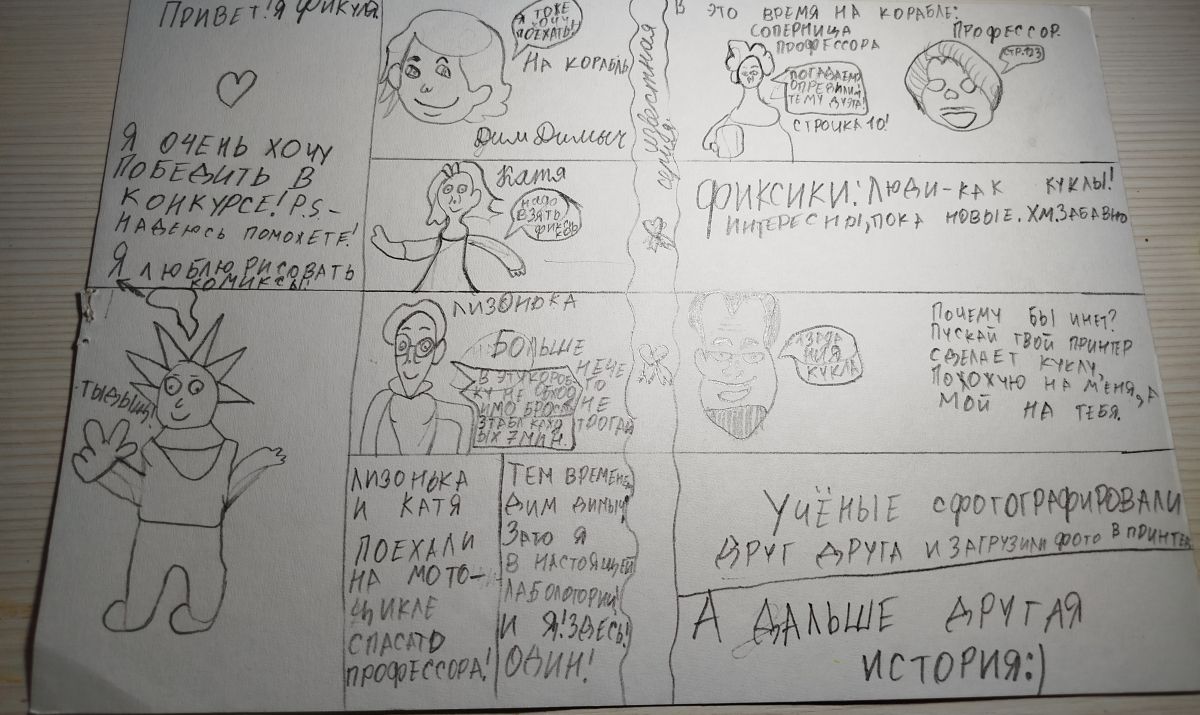 ПРИВЕТ! Я ФИКУЛЯ.
Я ОЧЕНЬ ХОЧУ
ПОБЕДИТЬ В
КОНКУРСЕ! P.S-
НАДЕЮСЬ ПОМОЖЕТЕ!
Я ЛЮБЛЮ РИСОВАТЬ
КОМИКСЫ!
ТЫДЫЩ!
Я ТОЖЕ
ХОЧУ
ПОЕХАТЬ!
НА КОРАБЛЬ
ДимДимыч
Катя
НАДО
ВЗЯТЬ
ЛИЗОНЬКА
БОЛЬШЕ
НЕЧЕ
ГО
НЕ
ТРОГАЙ
В ЭТУ КОРОБ
КУ НЕ ОБХОД
ИМО БРОСА
7 МИН.
ЛИЗОНЬКА
И КАТЯ
ПОЕХАЛИ
НА МОТО-
ЦИКЛЕ
СПАСАТЬ
ПРОФЕССОРА!
ТЕМ ВРЕМЕНЕ
ДИМ ДИМЫЧ
ЗАТО Я
В НАСТОЯЩЕЙ
ЛАБОЛОТОРИИ
И Я! ЗДЕСЬ!
ОДИН!
известная
серия.
В ЭТО ВРЕМЯ НА КОРАБЛЕ:
СОПЕРНИЦА
ПРОФЕССОРА
ТЕМУ
СТРОЧКА 10!
ПРОФЕССОР
СТР.123
ФИКСИКИ: ЛЮДИ-КАК КУКЛЫ!
ИНТЕРЕСНЫ, ПОКА НОВЫЕ. ХМ. ЗАБАВНО
КУКЛА
ПОЧЕМУ БЫ ИНЕТ?
ПУСКАЙ ТВОЙ ПРИНТЕР
СДЕЛАЕТ КУКЛУ,
ПОХОЖУЮ НА МЕНЯ, А
МОЙ НА ТЕБЯ.
УЧЁНЫЕ СФОТОГРАФИРОВАЛИ
ДРУГ ДРУГА И ЗАГРУЗИЛИ ФОТО В ПРИНТЕР
А ДАЛЬШЕ ДРУГАЯ
ИСТОРИЯ:)